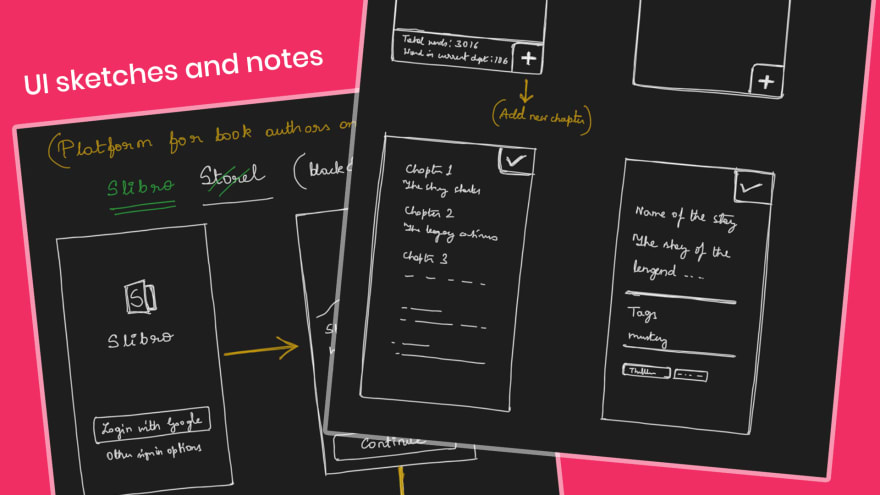 UI sketches and notes
(Platform for book authors on
Slibro
Storel
(black
S
Slibro
Login with Google
Other signin options
Continue
Total words: 3016
Word in current chpt: 106
+
(Add new chapter)
+
✓
Chapter 1
The story starts
Chapter 2
The legacy continues
Chapter 3
✓
Name of the story
The story of the
lengend ...
Tags
mustery
Thriller